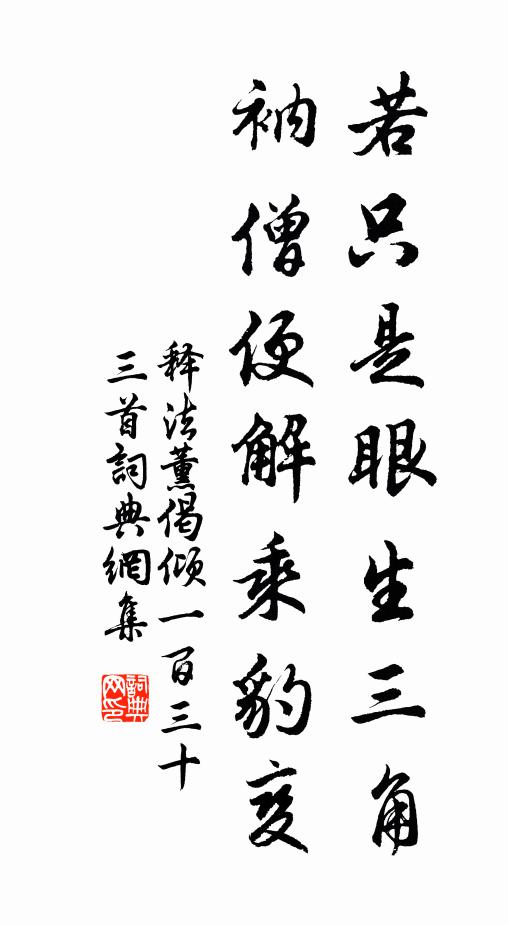 若只是眼生三角
衲僧便解乘豹变
释法薰偈倾一百三十
三首詞典網集
詞典
网印